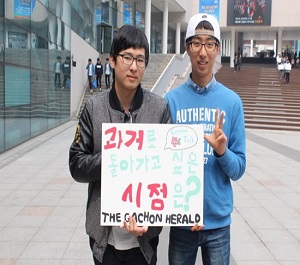 과거로
돌아가고 싶은
시점은?
THE GACHON HERALD
AUTHENTIC